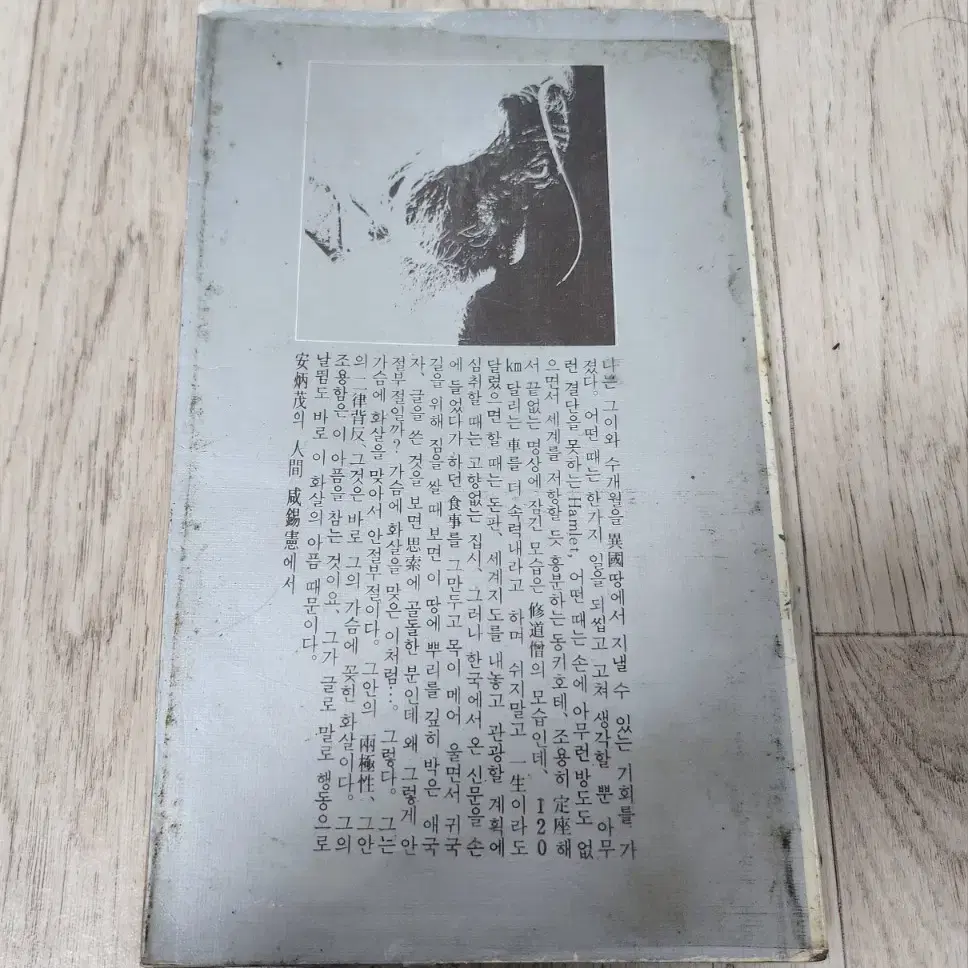 나는 그이와 수개월을 異國땅에서 지낼 수 있는 기회를 가
졌다. 어떤 때는 한가지 일을 되씹고 고쳐 생각할 뿐 아무
런 결단을 못하는 Hamlet, 어떤 때는 손에 아무런 방도도 없
으면서 세계를 저항할 듯 흥분하는 동키호테, 조용히 定座해
서 끝없는 명상에 잠긴 모습은 修道僧의 모습인데, 120
km 달리는 車를 더 속력내라고 하며 쉬지말고 一生이라도
달렸으면 할 때는 돈판, 세계지도를 내놓고 관광할 계획에
심취할 때는 고향없는 집시, 그러나 한국에서 온 신문을 손
에 들었다가 하던 食事를 그만두고 목이 메어 울면서 귀국
길을 위해 짐을 쌀 때 보면 이 땅에 뿌리를 깊히 박은 애국
자, 글을 쓴 것을 보면 思索에 골돌한 분인데 왜 그렇게 안
절부절일까? 가슴에 화살을 맞은 이처럼…. 그렇다. 그는
가슴에 화살을 맞아서 안절부절이다. 그안의 兩極性, 그안
의 二律背反, 그것은 바로 그의 가슴에 꽂힌 화살이다. 그의
조용함은 이 아픔을 참는 것이요, 그가 글로 말로 행동으로
날뜀도 바로 이 화살의 아픔 때문이다.
安炳茂의 人間 咸錫憲에서